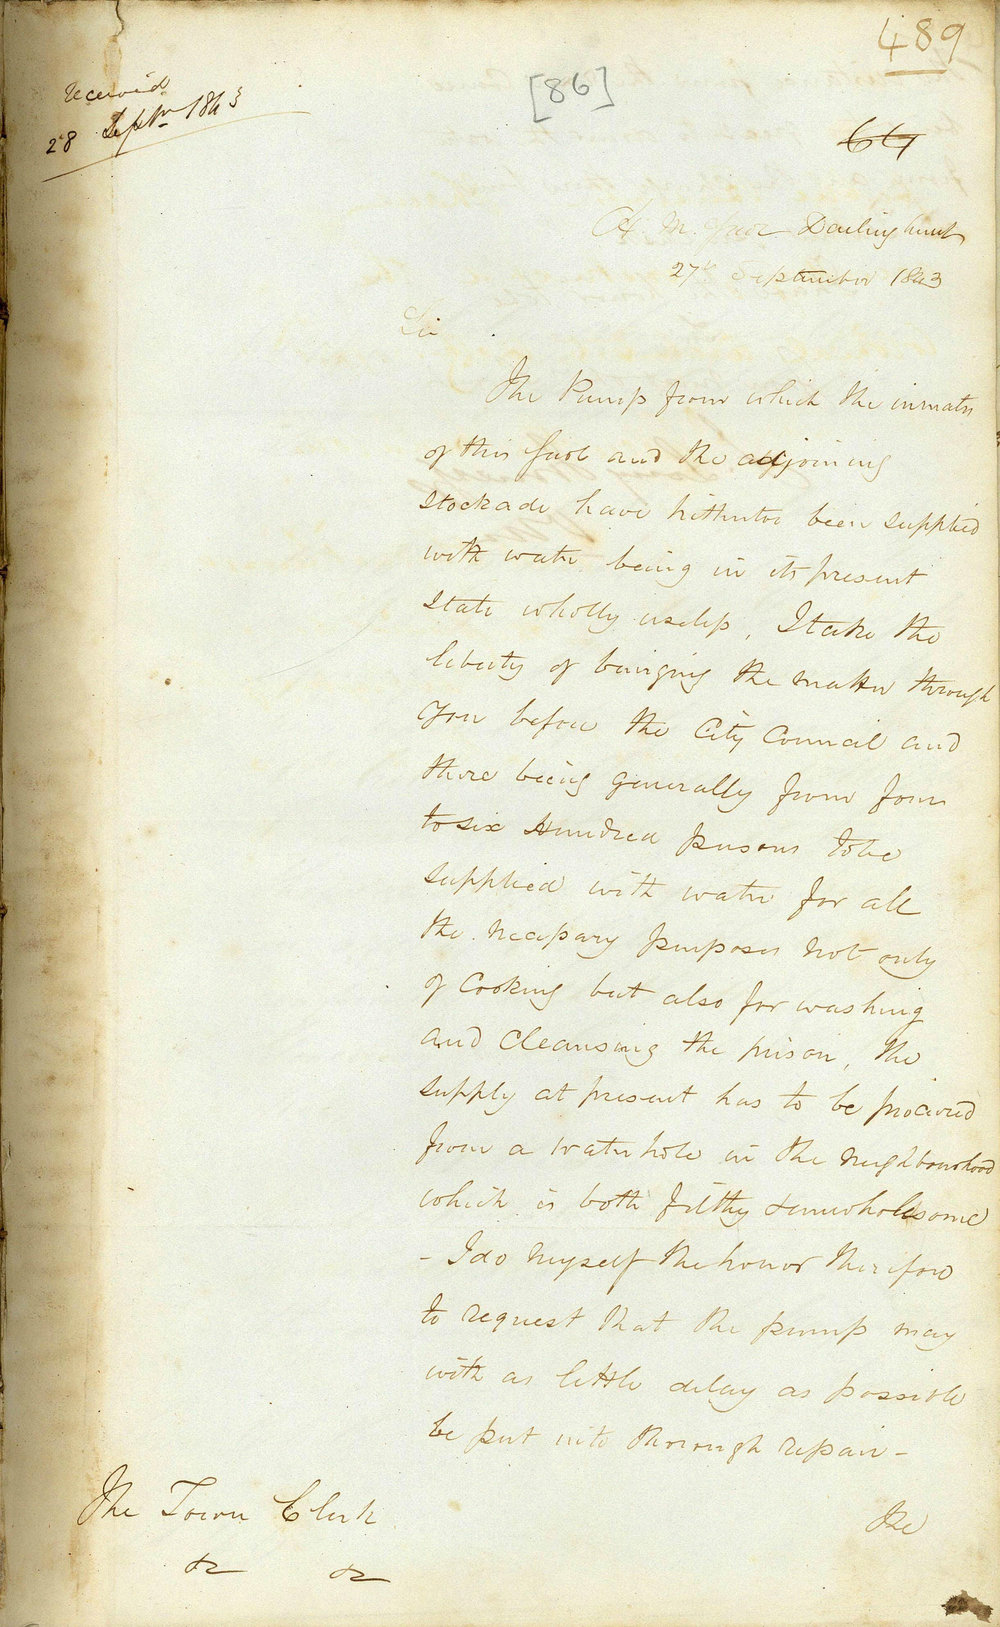 489
[86]
received
28 Septr 1843
64
H. M. Gaol Darlinghurst
27th September 1843
Sir
The Pump from which the inmates
of this Gaol and the adjoining
Stockade have hitherto been supplied
with water being in its present
State wholly useless, I take the
liberty of bringing the matter through
you before the City Council and
there being generally from four
to six Hundred persons to be
supplied with water for all
the necessary purposes not only
of Cooking but also for washing
and Cleansing the prison, the
supply at present has to be procured
from a water hole in the neighbourhood
which is both filthy & unwholesome
- I do myself the honor therefore
to request that the pump may
with as little delay as possible
be put into thorough repair -
The Town Clerk
&c &c
The